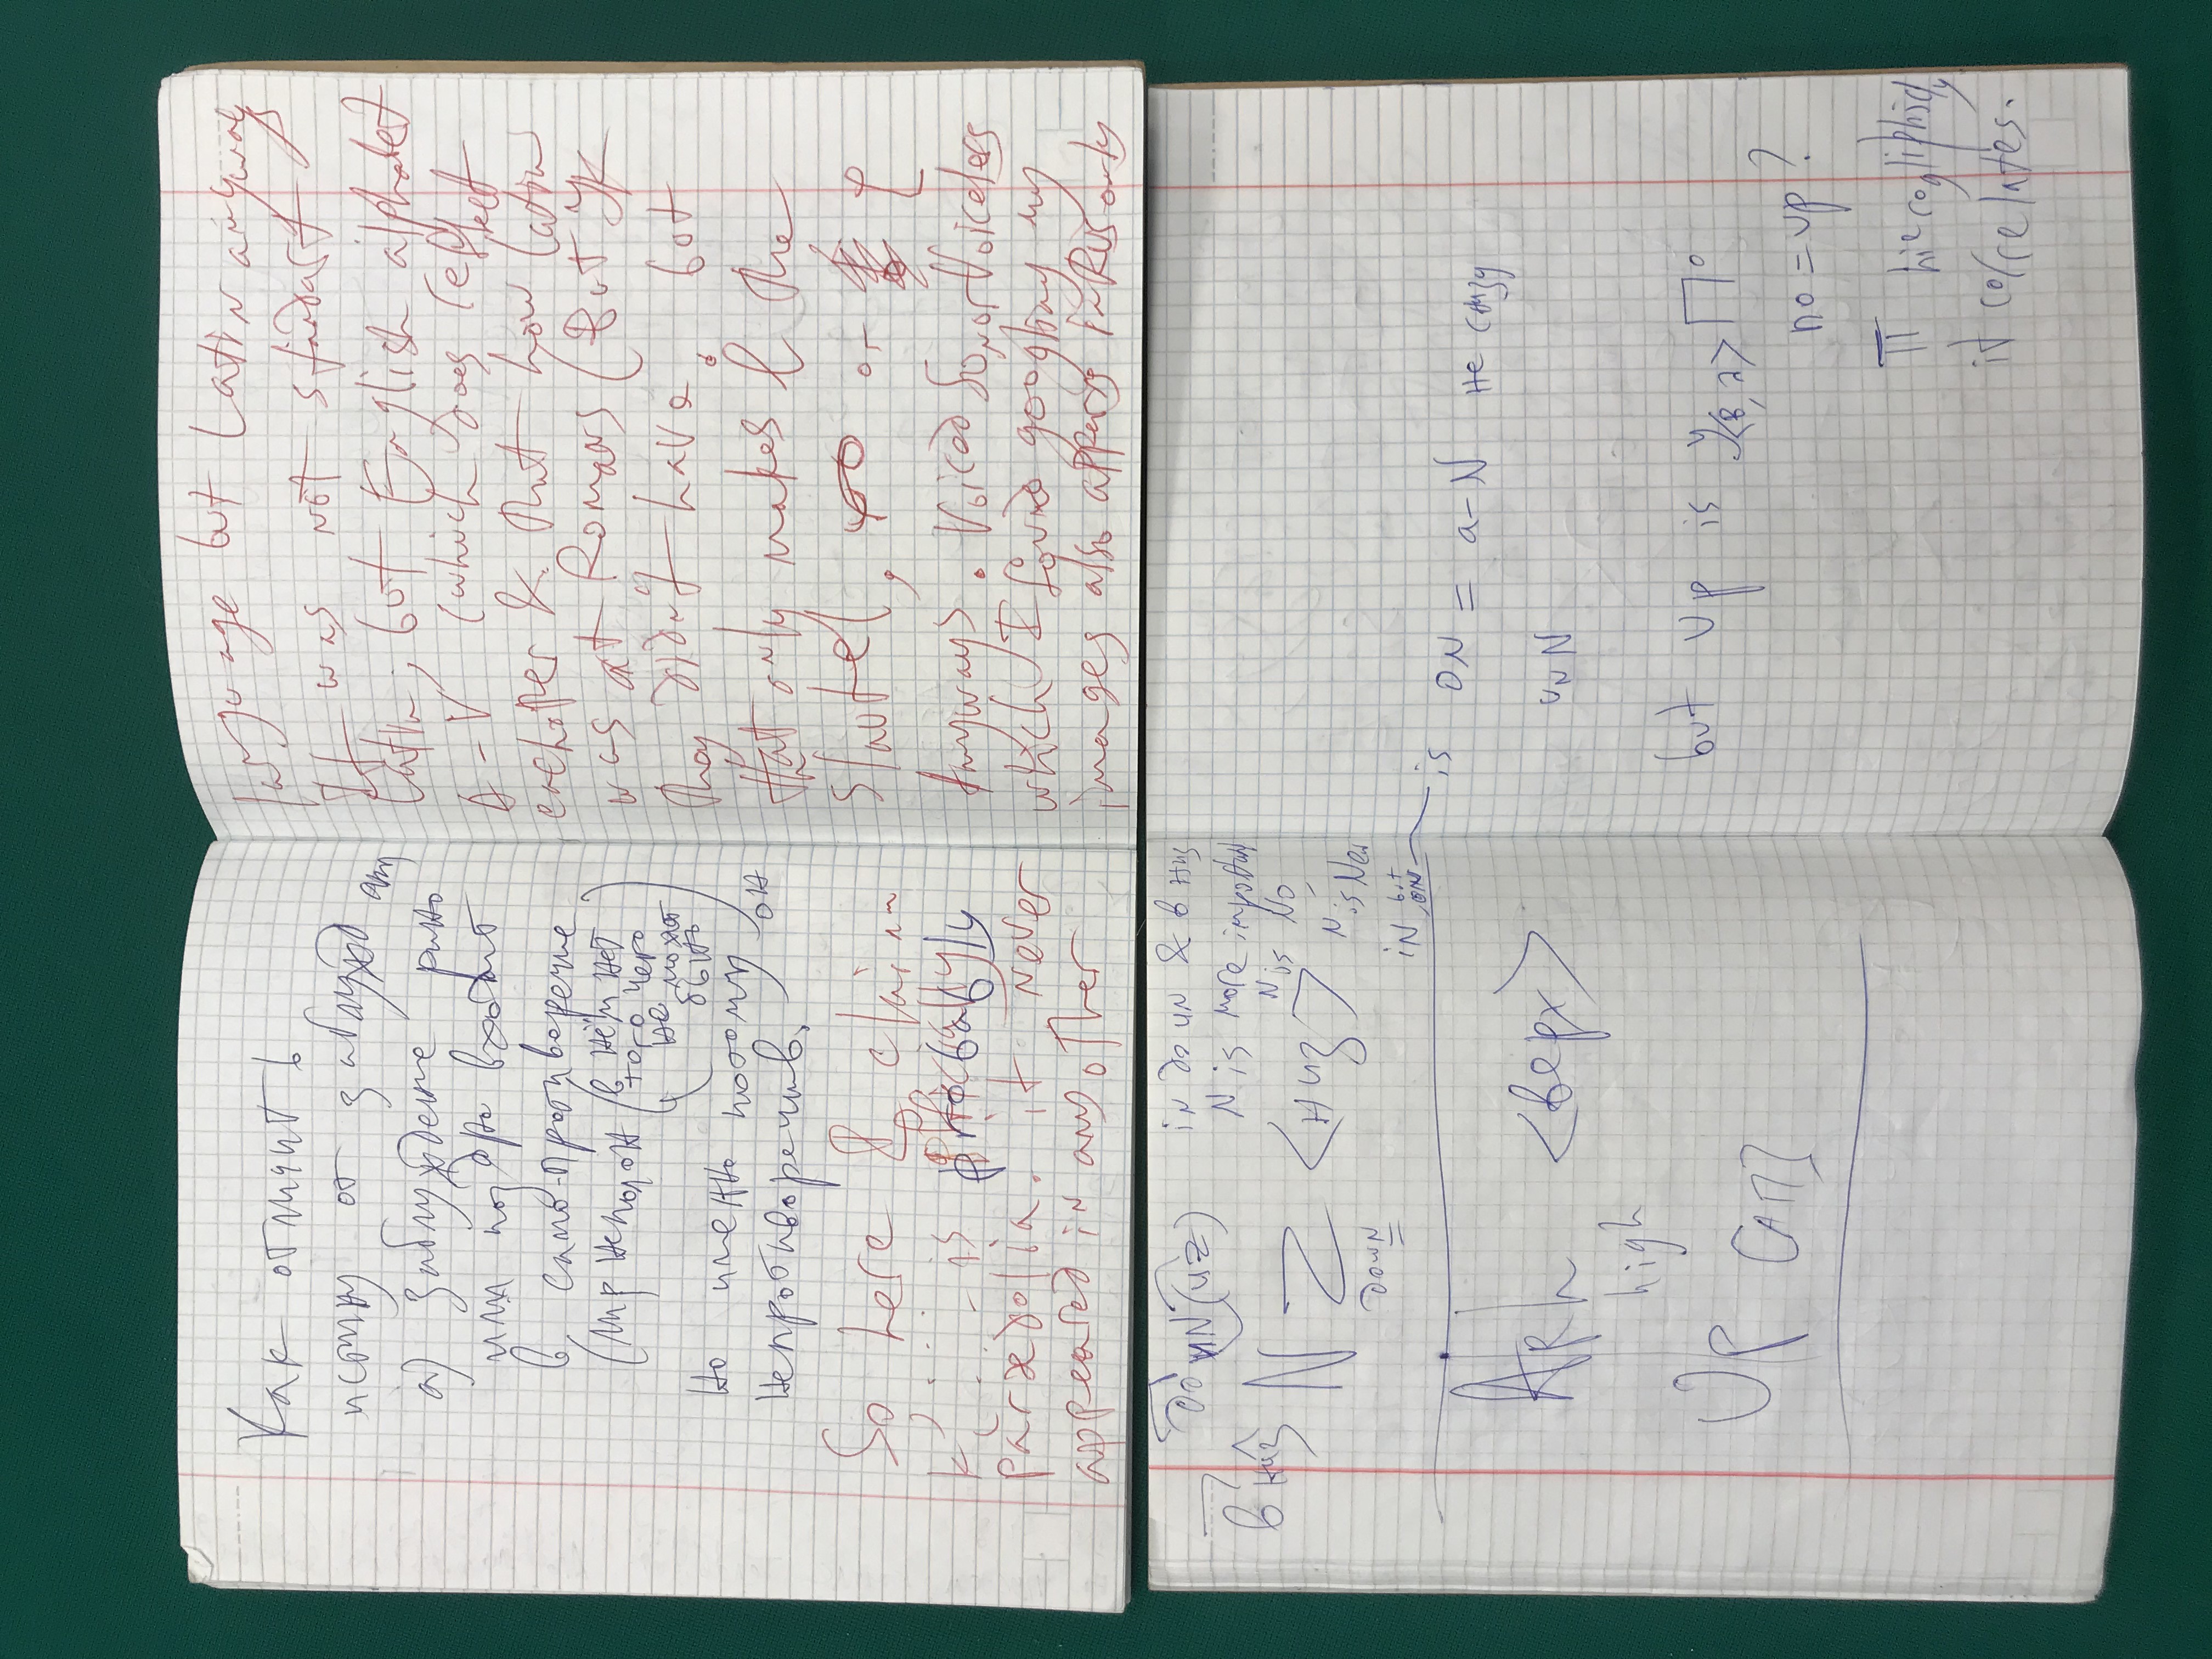 Как отличить
истину от заблуждения
а) заблуждение рано
или поздно входит
в само-противоречие
(мир неполон (в нём нет
того чего
не может
быть)
но именно поэтому он
непротиворечив.
So here I claim
is probably
paræ dolia. it never
appeared in any other
language but Latin anyway
It was not standart
Latin, but English alphabet
A-V (which does reflect
eachother & that how latin
was at Romans (But YK
they didn't have, but
that only makes l the
slautel, or
Anyways. Voiced Sonor Voiceless
which I found googling my
images also appears in Rus only
до wN (из)
in до wN & в низ
N is more important
в низ
N Z <низ>
N is No
N is New
down
in but on is
ON = a-N не снизу
Arh <верх>
high
UnN
Up [ап]
but up is у<в,л> По
по = up?
П hierogliphicly
it correlates.